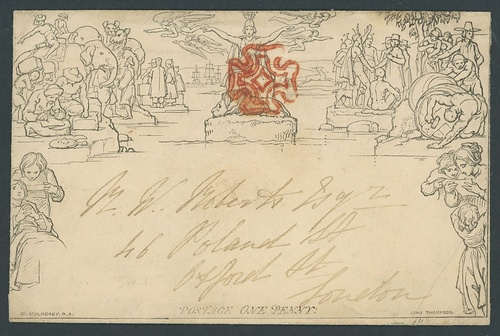 R. W. Roberts Esqr
46 Poland St
Oxford St
London
POSTAGE ONE PENNY.
W. MULREADY, R.A.
JOHN THOMPSON.